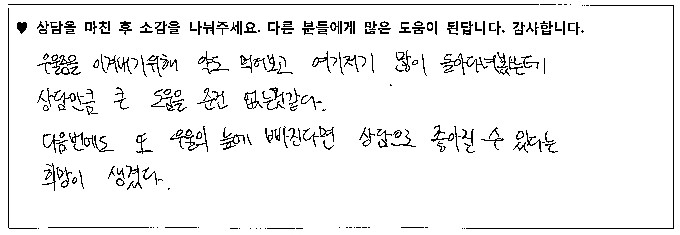 ♥ 상담을 마친 후 소감을 나눠주세요. 다른 분들에게 많은 도움이 된답니다. 감사합니다.
우울증을 이겨내기위해 약도 먹어보고 여기저기 많이 돌아다녀봤는데
상담만큼 큰 도움을 준건 없는것같다.
다음번에도 또 우울의 늪에 빠진다면 상담으로 좋아질 수 있다는
희망이 생겼다.